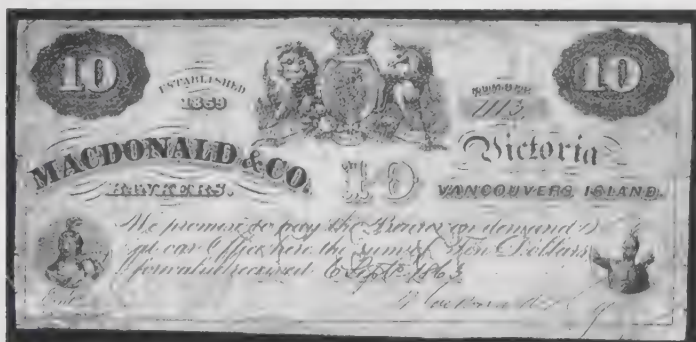 10
10
ESTABLISHED
1859
NUMBER
1113
MACDONALD & CO.
BANKERS.
10
Victoria
VANCOUVERS ISLAND.
We promise to pay the Bearer on demand
at our Office here the sum of Ten Dollars
for value received 6 Sept. 1863